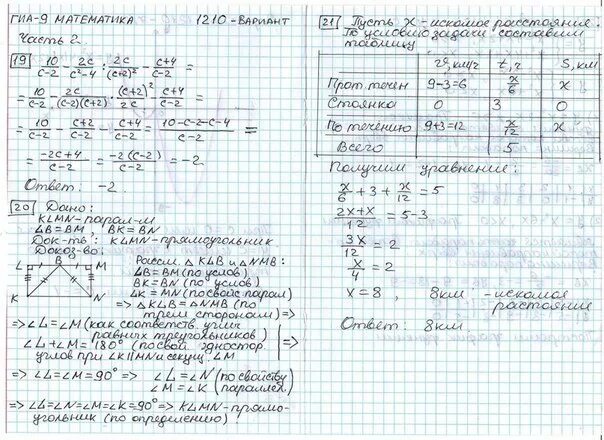 ГИА-9 МАТЕМАТИКА 1210-ВАРИАНТ
Часть 2.
19 10/(c-2) - 2c/(c²-4) : 2c/(c+2)² - (c+4)/(c-2) =
= 10/(c-2) - 2c/((c-2)(c+2)) · (c+2)²/2c - (c+4)/(c-2) =
= 10/(c-2) - (c+2)/(c-2) - (c+4)/(c-2) = (10-c-2-c-4)/(c-2) =
= (-2c+4)/(c-2) = -2(c-2)/(c-2) = -2
Ответ: -2.
20 Дано:
KLMN-парал-м
LB=BM, BK=BN
Док-ть: KLMN-прямоугольник
Доказ-во:
L B M
K N
Рассм. △KLB и △NMB:
LB=BM (по услов)
BK=BN (по услов)
LK=MN (по свойс парал)
=> △KLB=△NMB (по
трём сторонам) =>
=> ∠L=∠M (как соответств. углы
равных треугольников)
∠L+∠M=180° (по свой. одностор.
углов при LK||MN и секущ. LM
=>
=> ∠L=∠M=90° => ∠L=∠N (по свойству
∠M=∠K параллел.)
=> ∠L=∠N=∠M=∠K=90° => KLMN-прямо-
угольник (по определению)
21 Пусть x - искомое расстояние.
По условию задачи составим
таблицу
V, км/ч t, ч S, км
Прот. течен 9-3=6 x/6 x
Стоянка 0 3 0
По течению 9+3=12 x/12 x
Всего 5
Получим уравнение:
x/6 + 3 + x/12 = 5
(2x+x)/12 = 5-3
3x/12 = 2
x/4 = 2
x=8, 8км - искомое
расстояние
Ответ: 8км.